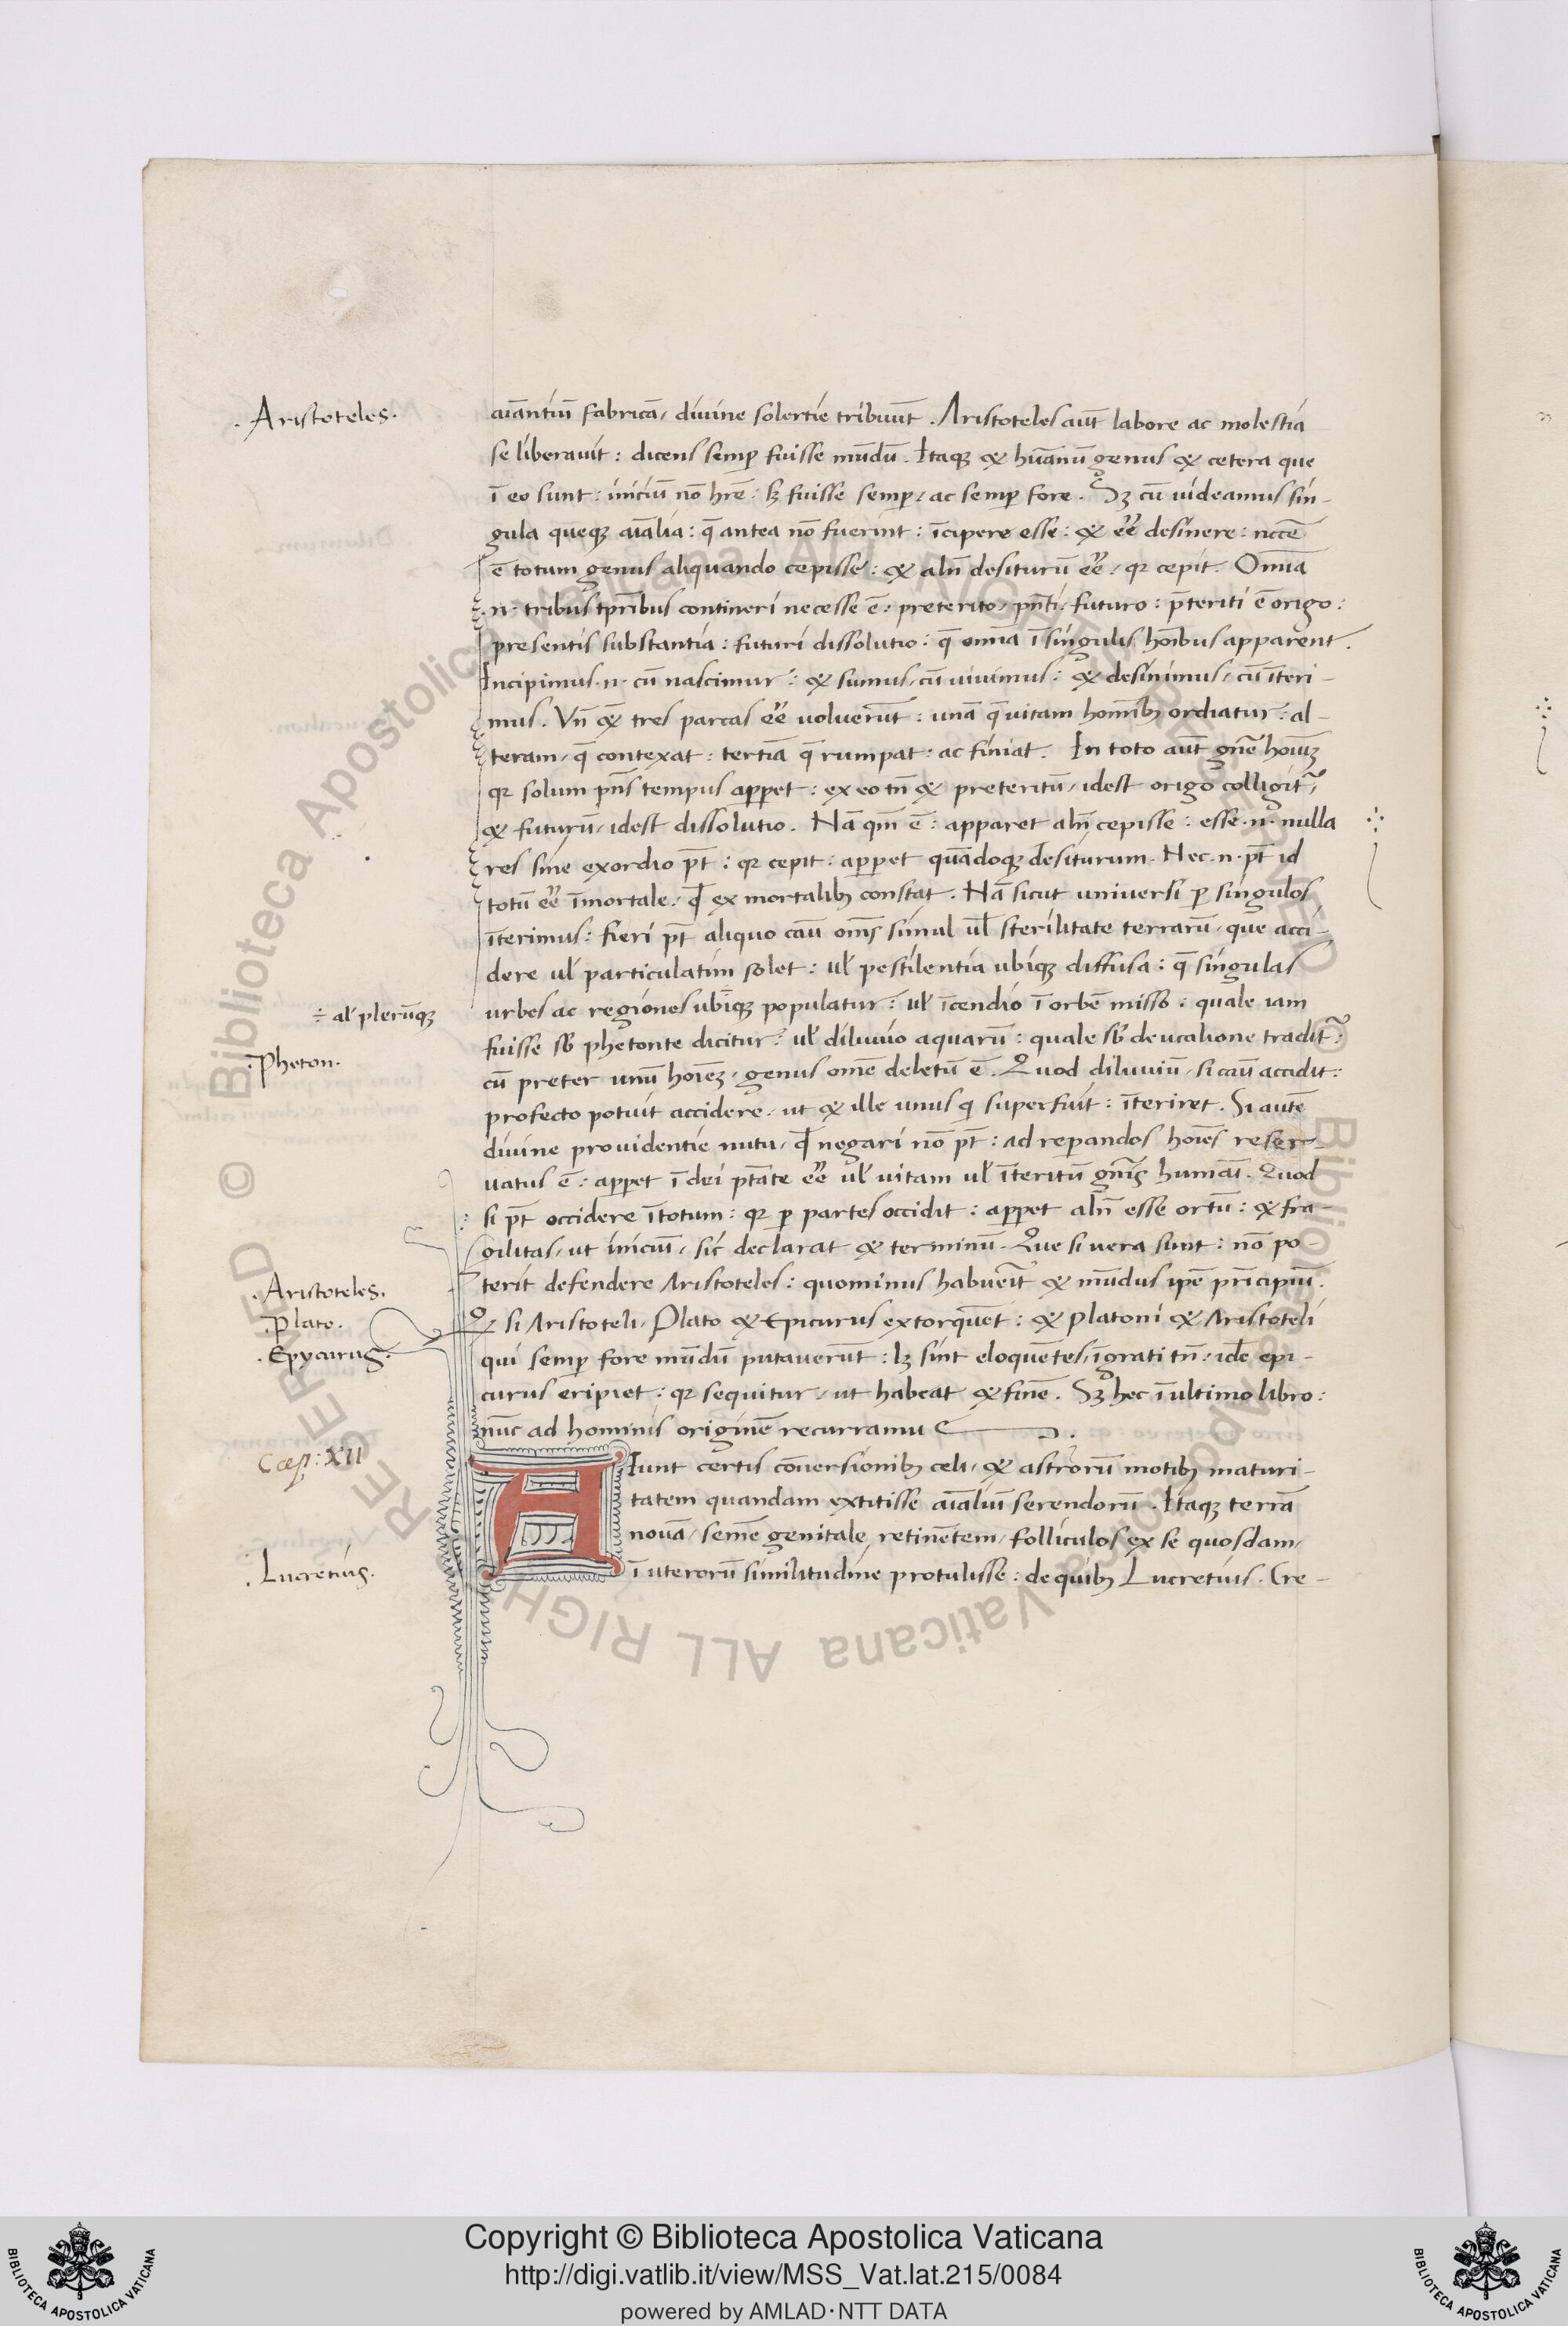 .Aristoteles.
aiantiū fabricā, divine solertie tribuūt. Aristoteles aūt labore ac molestia
se liberavit: dicens semp̱ fuisse mūdū. Itaqꝫ & hūanū genus & cetera que
ī eo sunt: iniciū nō hr̄e: sꝫ fuisse semp̱, ac semp̱ fore. Sꝫ cū videamus sin-
gula queqꝫ aīalia: q̄ antea nō fuerint: īcipere esse: & ee̅ desinere: nccē
ē totum genus aliquando cepisse: & aln̄ desiturū ee̅, qꝛ cepit. Omīa
.n. tribus tpr̄ibus contineri necesse ē: preterito, pn̄ti, futuro: p̄teriti ē origo:
presentis substantia: futuri dissolutio: q̄ omīa ī singulis hōibus apparent.
Incipimus.n. cū nascimur: & sumus, cū vivimus: & desinimus, cū īteri-
mus. Vn̄ & tres parcas ee̅ voluerūt: unā q̄ vitam homībꝫ ordiatur: al-
teram, q̄ contexat: tertiā q̄ rumpat: ac finiat. In toto aūt gn̄e hoīuꝫ
qꝛ solum pn̄s tempus appet: ex eo tn̄ & preteritū, idest origo colligit᷑,
& futurū, idest dissolutio. Nā qm̄ ē: apparet aln̄ cepisse: esse.n. nulla
res sine exordio pt̄: qꝛ cepit: appet quādoqꝫ desiturum. Nec.n. pt̄ id
totū ee̅ īmortale, qđ ex mortalibꝫ constat. Nā sicut universi p̱ singulos
īterimus: fieri pt̄ aliquo cāu om̄s simul ul̄ sterilitate terrarū, que acci-
dere ul̄ particulatim solet: ul̄ pestilentia ubiqꝫ diffusa: q̄ singulas
÷ al' plerūqꝫ
urbes ac regiones ubiqꝫ populatur: ul̄ īcendio ī orbē misso: quale iam
fuisse sb̄ phetonte dicitur: ul̄ diluvio aquarū: quale sb̄ deucalione tradit᷑:
.Pheton.
cū preter unū hoīeꝫ, genus omē deletū ē. Quod diluviū, si cāu accidit:
profecto potuit accidere, ut & ille unus qi superfuit: īteriret. Si autē
divine providentie nutu, qđ negari nō pt̄: ad reparandos hoīes reser-
vatus ē: appet ī dei ptāte ee̅ ul̄ vitam ul̄ īteritū gn̄is humāi. Quod
si pt̄ occidere ītotum: qꝛ p̱ partes occidit: appet aln̄ esse ortū: & fra-
gilitas, ut iniciū, sic declarat & terminū. Que si vera sunt: nō po-
terit defendere Aristoteles: quominus habueīt & mūdus ipē prīcipiū.
.Aristoteles.
.Plato.
.Epycurus.
Qꝫ si Aristoteli, Plato & Epicurus extorquēt: & Platoni & Aristoteli
qui semp̱ fore mūdū putaverūt: lꝫ sint eloquētes, īgrati tn̄, idē epi-
curus eripiet: qꝛ sequitur, ut habeat & finē. Sꝫ hec ī ultimo libro:
nūc ad hominis originē recurramus.
Cap: XII
AIunt certis cōversionibꝫ celi, & astrorū motibꝫ maturi-
tatem quandam extitisse aīaliū serendorū. Itaqꝫ terrā
novā, semē genitale retinētem, folliculos ex se quosdam,
ī uterorū similitudine protulisse: de quibꝫ Lucretius. Cre-
.Lucretius.
© Biblioteca Apostolica Vaticana ALL RIGHTS RESERVED
Copyright © Biblioteca Apostolica Vaticana
http://digi.vatlib.it/view/MSS_Vat.lat.215/0084
powered by AMLAD·NTT DATA
BIBLIOTECA APOSTOLICA VATICANA
BIBLIOTECA APOSTOLICA VATICANA